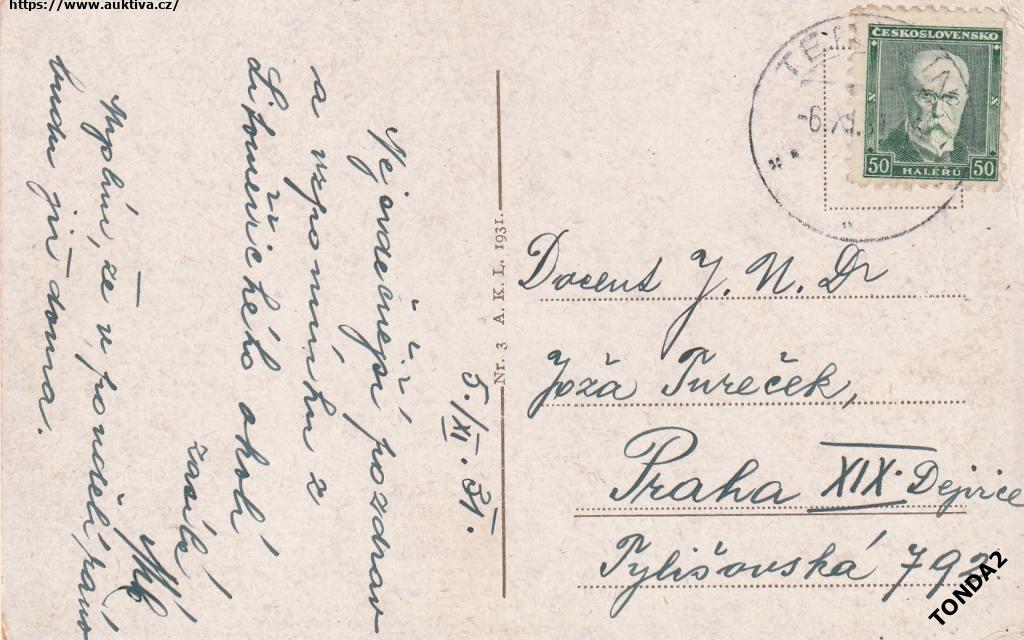 https://www.auktiva.cz/
5./XI. 31.
Nejsrdečnější pozdrav
a vzpomínku z
Litoměřického okolí
zasílá
že v pondělí ráno
budu již doma.
Nr. 3 A. K. L. 1931.
ČESKOSLOVENSKO
50 HALÉŘŮ 50
Docent J. N. Dr
Joža Tureček,
Praha XIX. Dejvice
Tylišovská 792
TONDA2